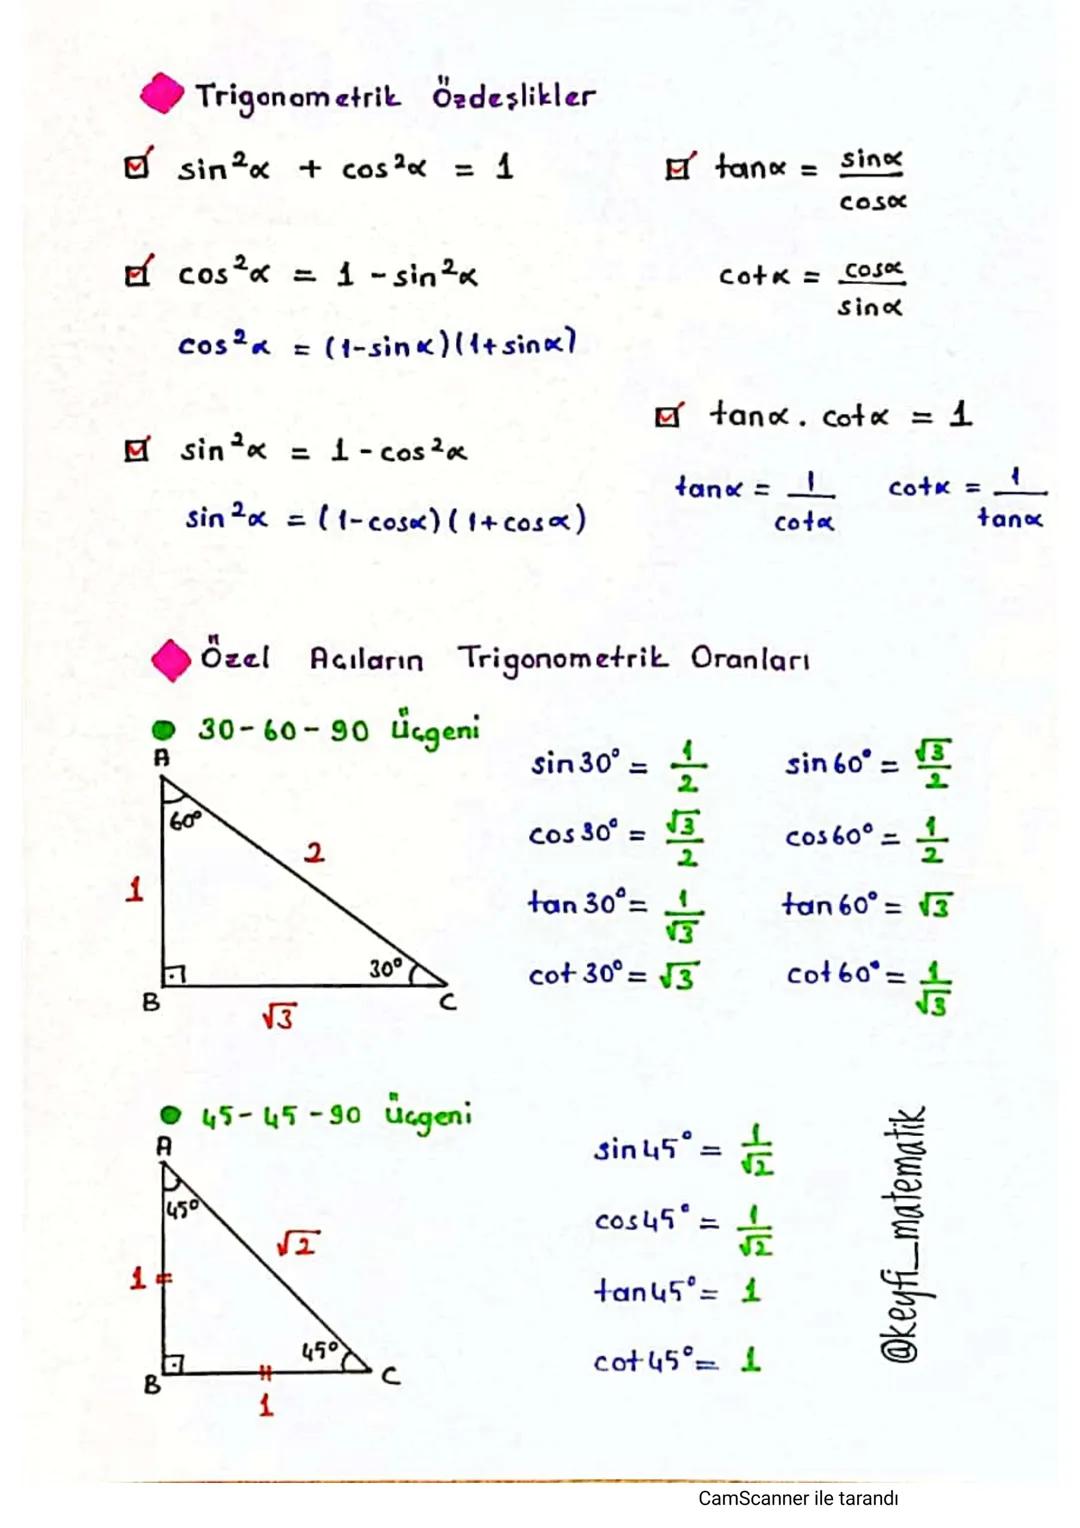 Trigonometrik Özdeşlikler
sin²α + cos²α = 1
cos²α = 1 - sin²α
cos²α = (1-sinα)(1+sinα)
sin²α = 1 - cos²α
sin²α = (1-cosα)(1+cosα)
tanα = sinα/cosα
cotα = cosα/sinα
tanα . cotα = 1
tanα = 1/cotα cotα = 1/tanα
Özel Açıların Trigonometrik Oranları
30-60-90 üçgeni
A
60°
2
1
30°
B
C
√3
sin30° = 1/2 sin60° = √3/2
cos30° = √3/2 cos60° = 1/2
tan30° = 1/√3 tan60° = √3
cot30° = √3 cot60° = 1/√3
45-45-90 üçgeni
A
45°
√2
1
45°
B
C
1
sin45° = 1/√2
cos45° = 1/√2
tan45° = 1
cot45° = 1
@keyfi_matematik
CamScanner ile tarandı